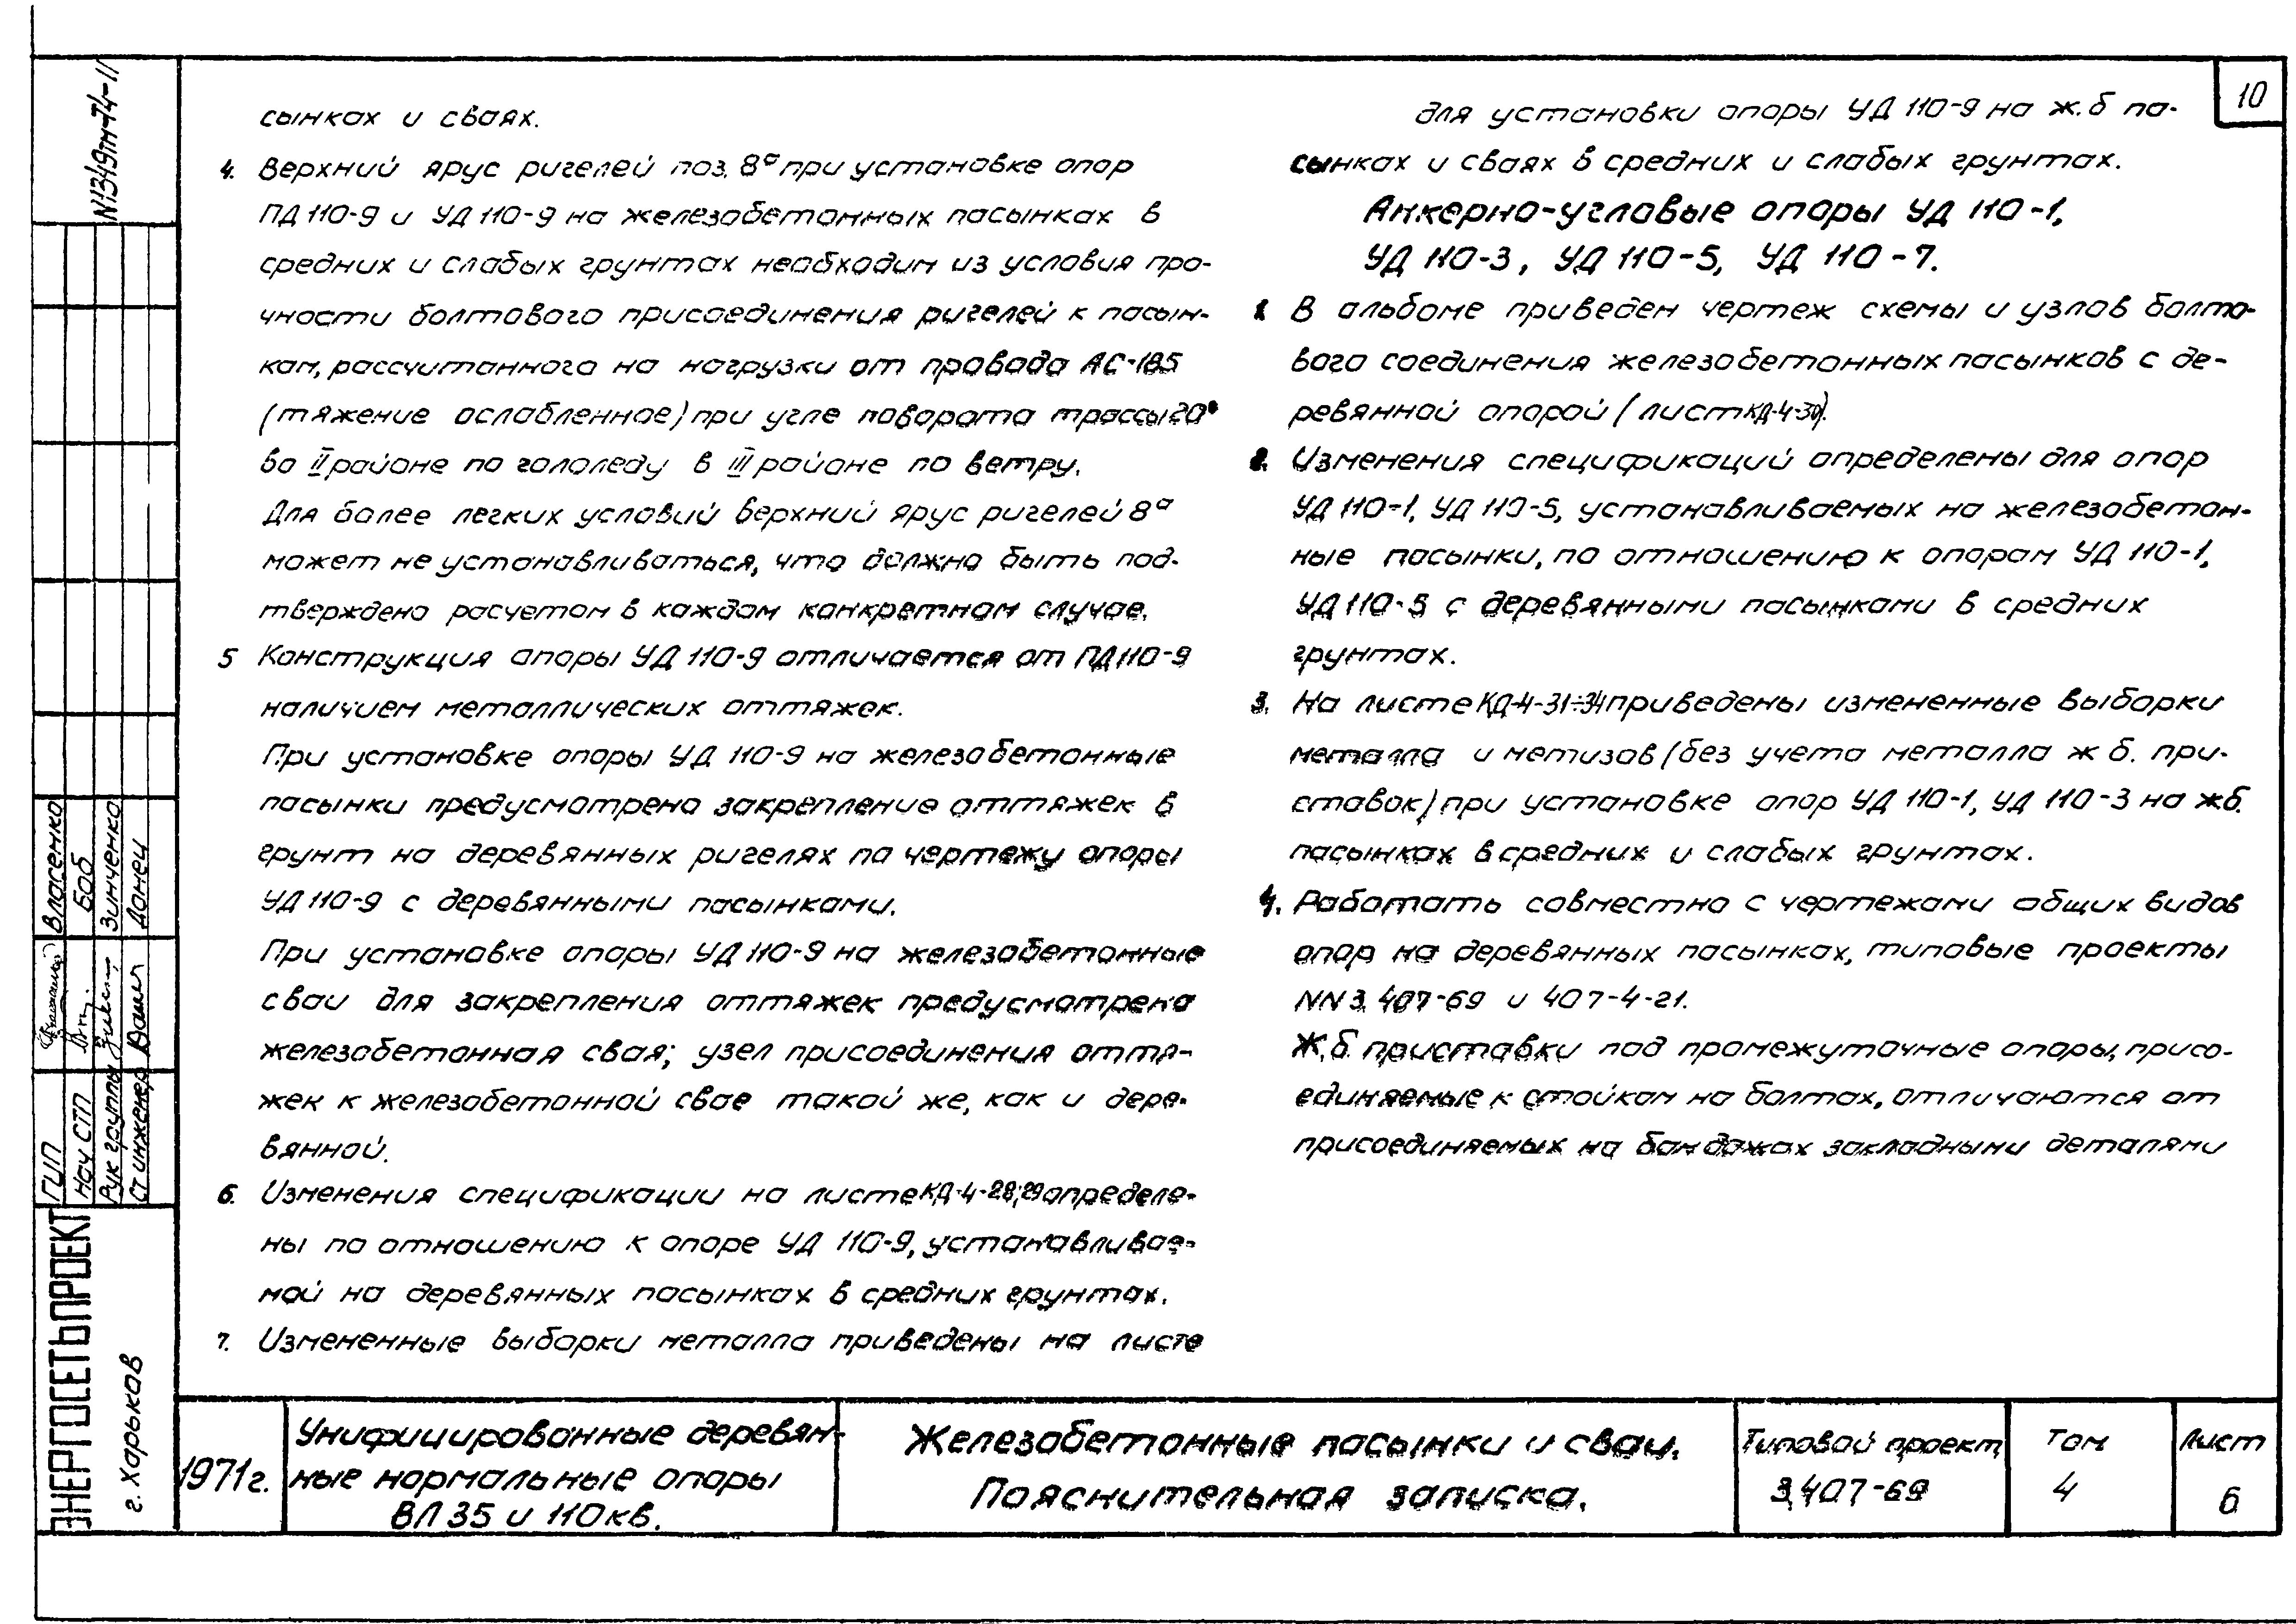 10
N1349тм-Т4-11
сынках и сваях.
4. Верхний ярус ригелей поз. 8а при установке опор
ПД 110-9 и УД 110-9 на железобетонных пасынках в
средних и слабых грунтах необходим из условия про-
чности болтового присоединения ригелей к пасын-
кам, рассчитанного на нагрузки от провода АС-185
(тяжение ослабленное) при угле поворота трассы 20°
во II районе по гололеду в III районе по ветру.
Для более легких условий верхний ярус ригелей 8а
может не устанавливаться, что должно быть под-
тверждено расчетом в каждом конкретном случае.
5 Конструкция опоры УД 110-9 отличается от ПД 110-9
наличием металлических оттяжек.
При установке опоры УД 110-9 на железобетонные
пасынки предусмотрено закрепление оттяжек в
грунт на деревянных ригелях по чертежу опоры
УД 110-9 с деревянными пасынками.
При установке опоры УД 110-9 на железобетонные
сваи для закрепления оттяжек предусмотрена
железобетонная свая; узел присоединения оття-
жек к железобетонной свае такой же, как и дере-
вянной.
6. Изменения спецификации на листе КД-4-28;29 определе-
ны по отношению к опоре УД 110-9, устанавливае-
мой на деревянных пасынках в средних грунтах.
7. Измененные выборки металла приведены на листе
для установки опоры УД 110-9 на ж.б па-
сынках и сваях в средних и слабых грунтах.
Анкерно-угловые опоры УД 110-1,
УД 110-3, УД 110-5, УД 110-7.
1. В альбоме приведен чертеж схемы и узлов болто-
вого соединения железобетонных пасынков с де-
ревянной опорой (лист КД-4-30).
2. Изменения спецификаций определены для опор
УД 110-1, УД 110-5, устанавливаемых на железобетон-
ные пасынки, по отношению к опорам УД 110-1,
УД 110-5 с деревянными пасынками в средних
грунтах.
3. На листе КД-4-31÷34 приведены измененные выборки
металла и метизов (без учета металла ж б. при-
ставок) при установке опор УД 110-1, УД 110-3 на жб.
пасынках в средних и слабых грунтах.
4. Работать совместно с чертежами общих видов
опор на деревянных пасынках, типовые проекты
NN 3.407-69 и 407-4-21.
Ж.б. приставки под промежуточные опоры, присо-
единяемые к стойкам на болтах, отличаются от
присоединяемых на бандажах закладными деталями
ГИП Власенко
Нач СТП Боб
Рук группы Зинченко
Ст инженер Донец
ЭНЕРГОСЕТЬПРОЕКТ
г. Харьков
1971г.
Унифицированные деревян-
ные нормальные опоры
ВЛ 35 и 110кв.
Железобетонные пасынки и сваи.
Пояснительная записка.
Типовой проект
3.407-69
Том
4
Лист
6